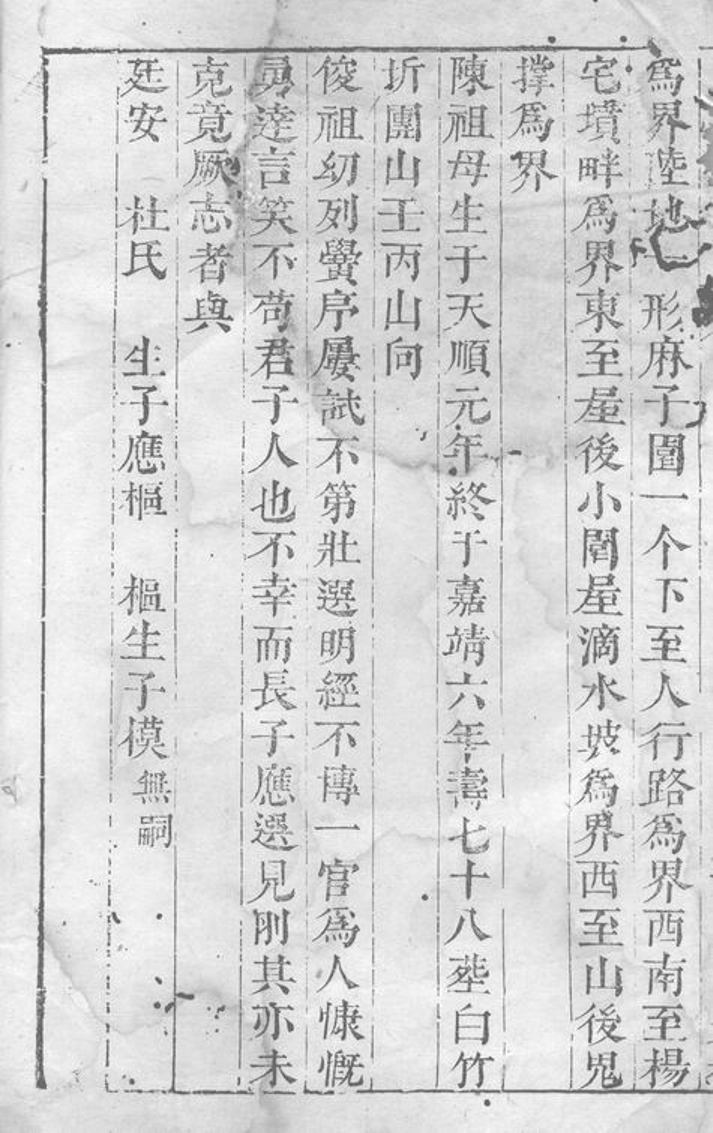 爲界陸地一形麻子園一个下至人行路爲界西南至楊
宅墳畔爲界東至屋後小閣屋滴水坡爲界西至山後鬼
撑爲界
陳祖母生于天順元年終于嘉靖六年壽七十八塟白竹
圻團山壬丙山向
俊祖幼列黌序屢試不第壯選明經不博一官爲人慷慨
勇達言笑不苟君子人也不幸而長子應選見刖其亦未
克竟厥志者與
廷安 杜氏 生子應樞 樞生子模無嗣